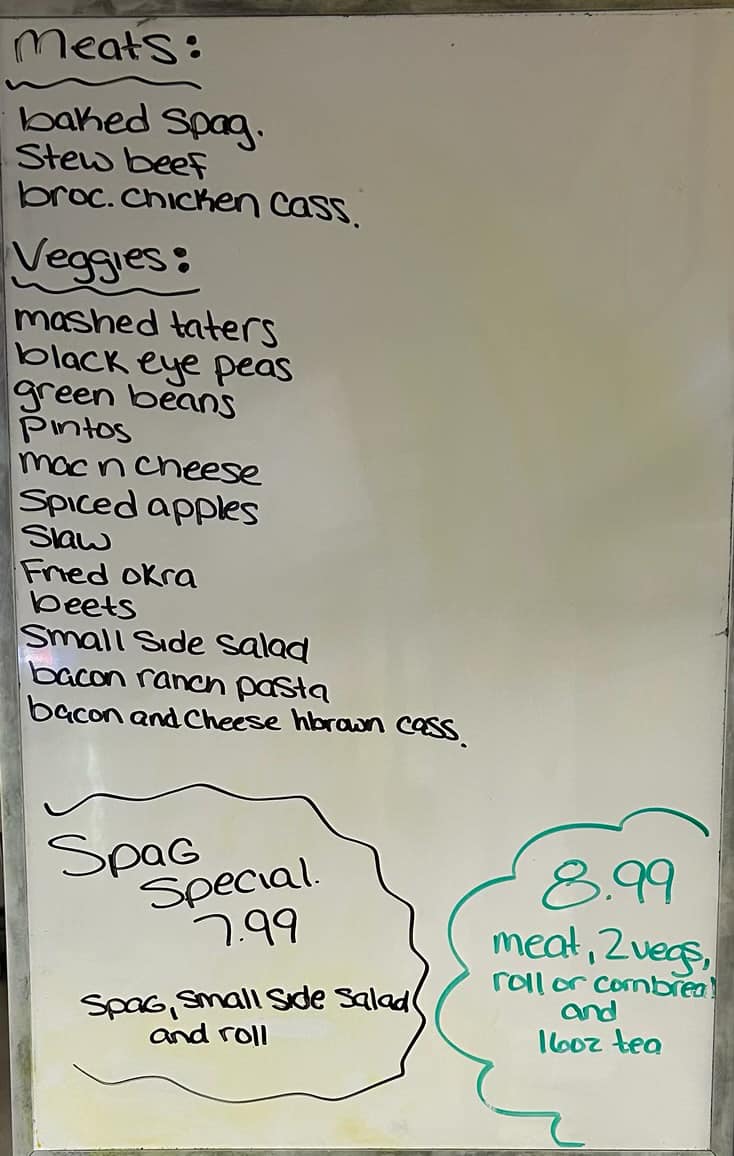 Meats:
baked Spag.
Stew beef
broc. chicken cass.
Veggies:
mashed taters
black eye peas
green beans
Pintos
mac n cheese
Spiced apples
Slaw
Fried okra
beets
Small Side Salad
bacon ranch pasta
bacon and Cheese hbrown cass.
Spag
Special.
7.99
Spag, Small Side Salad
and roll
8.99
meat, 2 vegs,
roll or cornbread
and
16oz tea